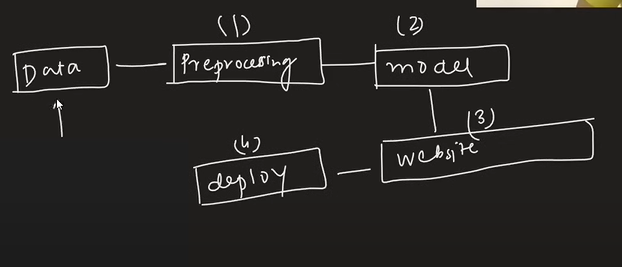 (1)
(2)
Data
Preprocesing
model
(3)
website
(4)
deploy